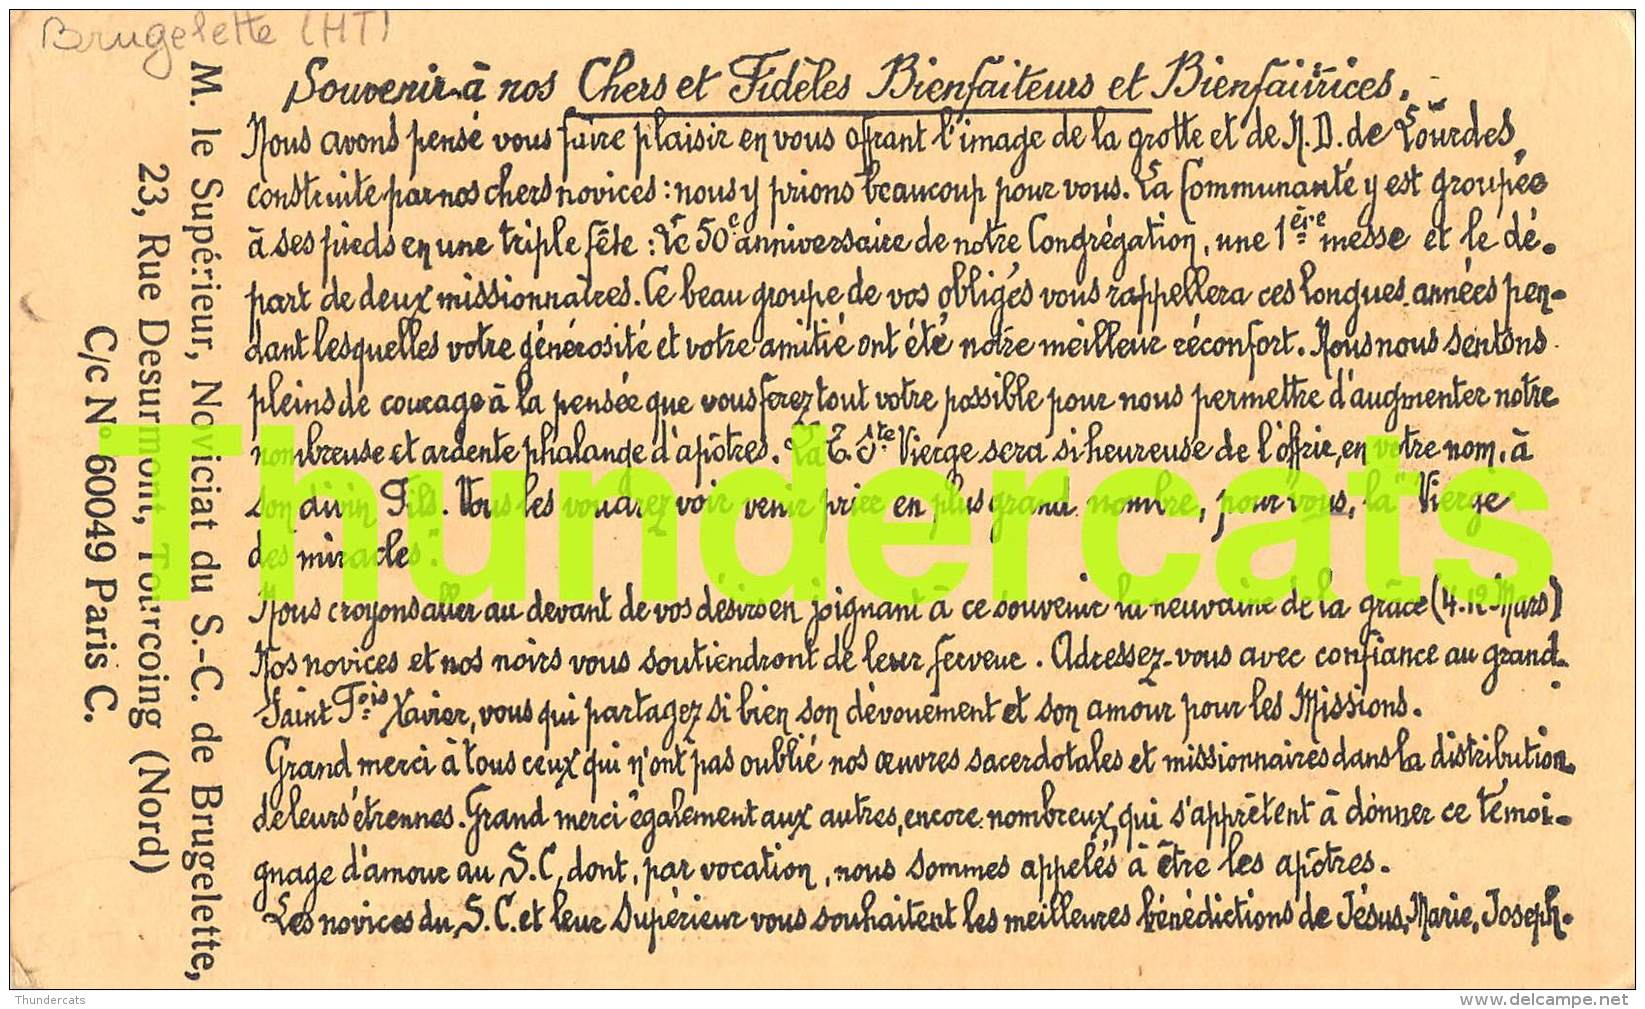 Brugelette (HT)
Souvenir à nos Chers et Fidèles Bienfaiteurs et Bienfaitrices.
Nous avons pensé vous faire plaisir en vous offrant l'image de la grotte et de N.D. de Lourdes,
construite par nos chers novices : nous y prions beaucoup pour vous. La Communauté y est groupée
à ses pieds en une triple fête : Le 50e anniversaire de notre Congrégation, une 1ère messe et le dé-
part de deux missionnaires. Ce beau groupe de vos obligés vous rappellera ces longues années pen-
dant lesquelles votre générosité et votre amitié ont été notre meilleur réconfort. Nous nous sentons
pleins de courage à la pensée que vous ferez tout votre possible pour nous permettre d'augmenter notre
nombreuse et ardente phalange d'apôtres. La T. Ste Vierge sera si heureuse de l'offrir, en votre nom, à
son divin Fils. Vous les voudrez voir venir prier en plus grand nombre, pour vous, la "Vierge
des miracles".
Nous croyons aller au devant de vos désirs en joignant à ce souvenir la neuvaine de la grâce (4.12 Mars)
Nos novices et nos noirs vous soutiendront de leur ferveur. Adressez-vous avec confiance au grand
Saint Fois Xavier, vous qui partagez si bien son dévouement et son amour pour les Missions.
Grand merci à tous ceux qui n'ont pas oublié nos œuvres sacerdotales et missionnaires dans la distribution
de leurs étrennes. Grand merci également aux autres, encore nombreux, qui s'apprêtent à donner ce témoi-
gnage d'amour au S.C. dont, par vocation, nous sommes appelés à être les apôtres.
Les novices du S.C. et leur Supérieur vous souhaitent les meilleures bénédictions de Jésus, Marie, Joseph.
M. le Supérieur, Noviciat du S.-C. de Brugelette,
23, Rue Desurmont, Tourcoing (Nord)
C/c N° 60049 Paris C.
Thundercats
Thundercats
www.delcampe.net